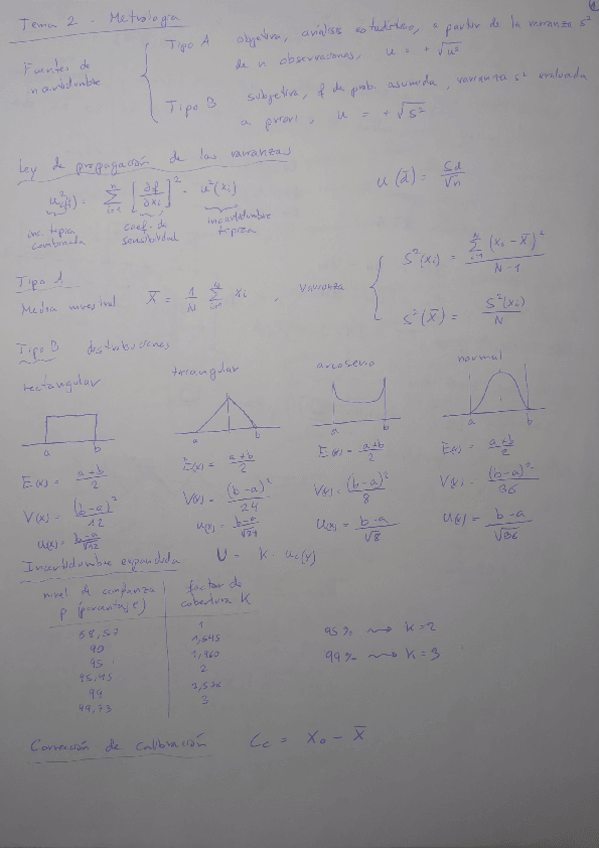 Tema 2. Metrología
Fuentes de incertidumbre
Tipo A objetiva, análisis estadístico, a partir de la varianza s²
de n observaciones, u = +√u²
Tipo B subjetiva, f de prob. asumida, varianza s² evaluada
a priori, u = +√s²
Ley de propagación de las varianzas
u²c(y) = Σ [∂f/∂xi]² · u²(xi)
inc. típica combinada
coef. de sensibilidad
incertidumbre típica
u(d̄) = Sd/√n
Tipo A
Media muestral X̄ = 1/N Σ xi , varianza
S²(xi) = Σ(xi - X̄)²/N-1
S²(X̄) = S²(xi)/N
Tipo B distribuciones
rectangular triangular arcoseno normal
a b a b a b a b
E(x) = a+b/2 E(x) = a+b/2 E(x) = a+b/2 E(x) = a+b/2
V(x) = (b-a)²/12 V(x) = (b-a)²/24 V(x) = (b-a)²/8 V(x) = (b-a)²/36
u(x) = b-a/√12 u(x) = b-a/√24 u(x) = b-a/√8 u(x) = b-a/√36
Incertidumbre expandida U = k · uc(y)
nivel de confianza p (porcentaje)
factor de cobertura K
68,27 1
90 1,645
95 1,960
95,45 2
99 2,576
99,73 3
95% ⟿ K=2
99% ⟿ K=3
Corrección de calibración Cc = X₀ - X̄